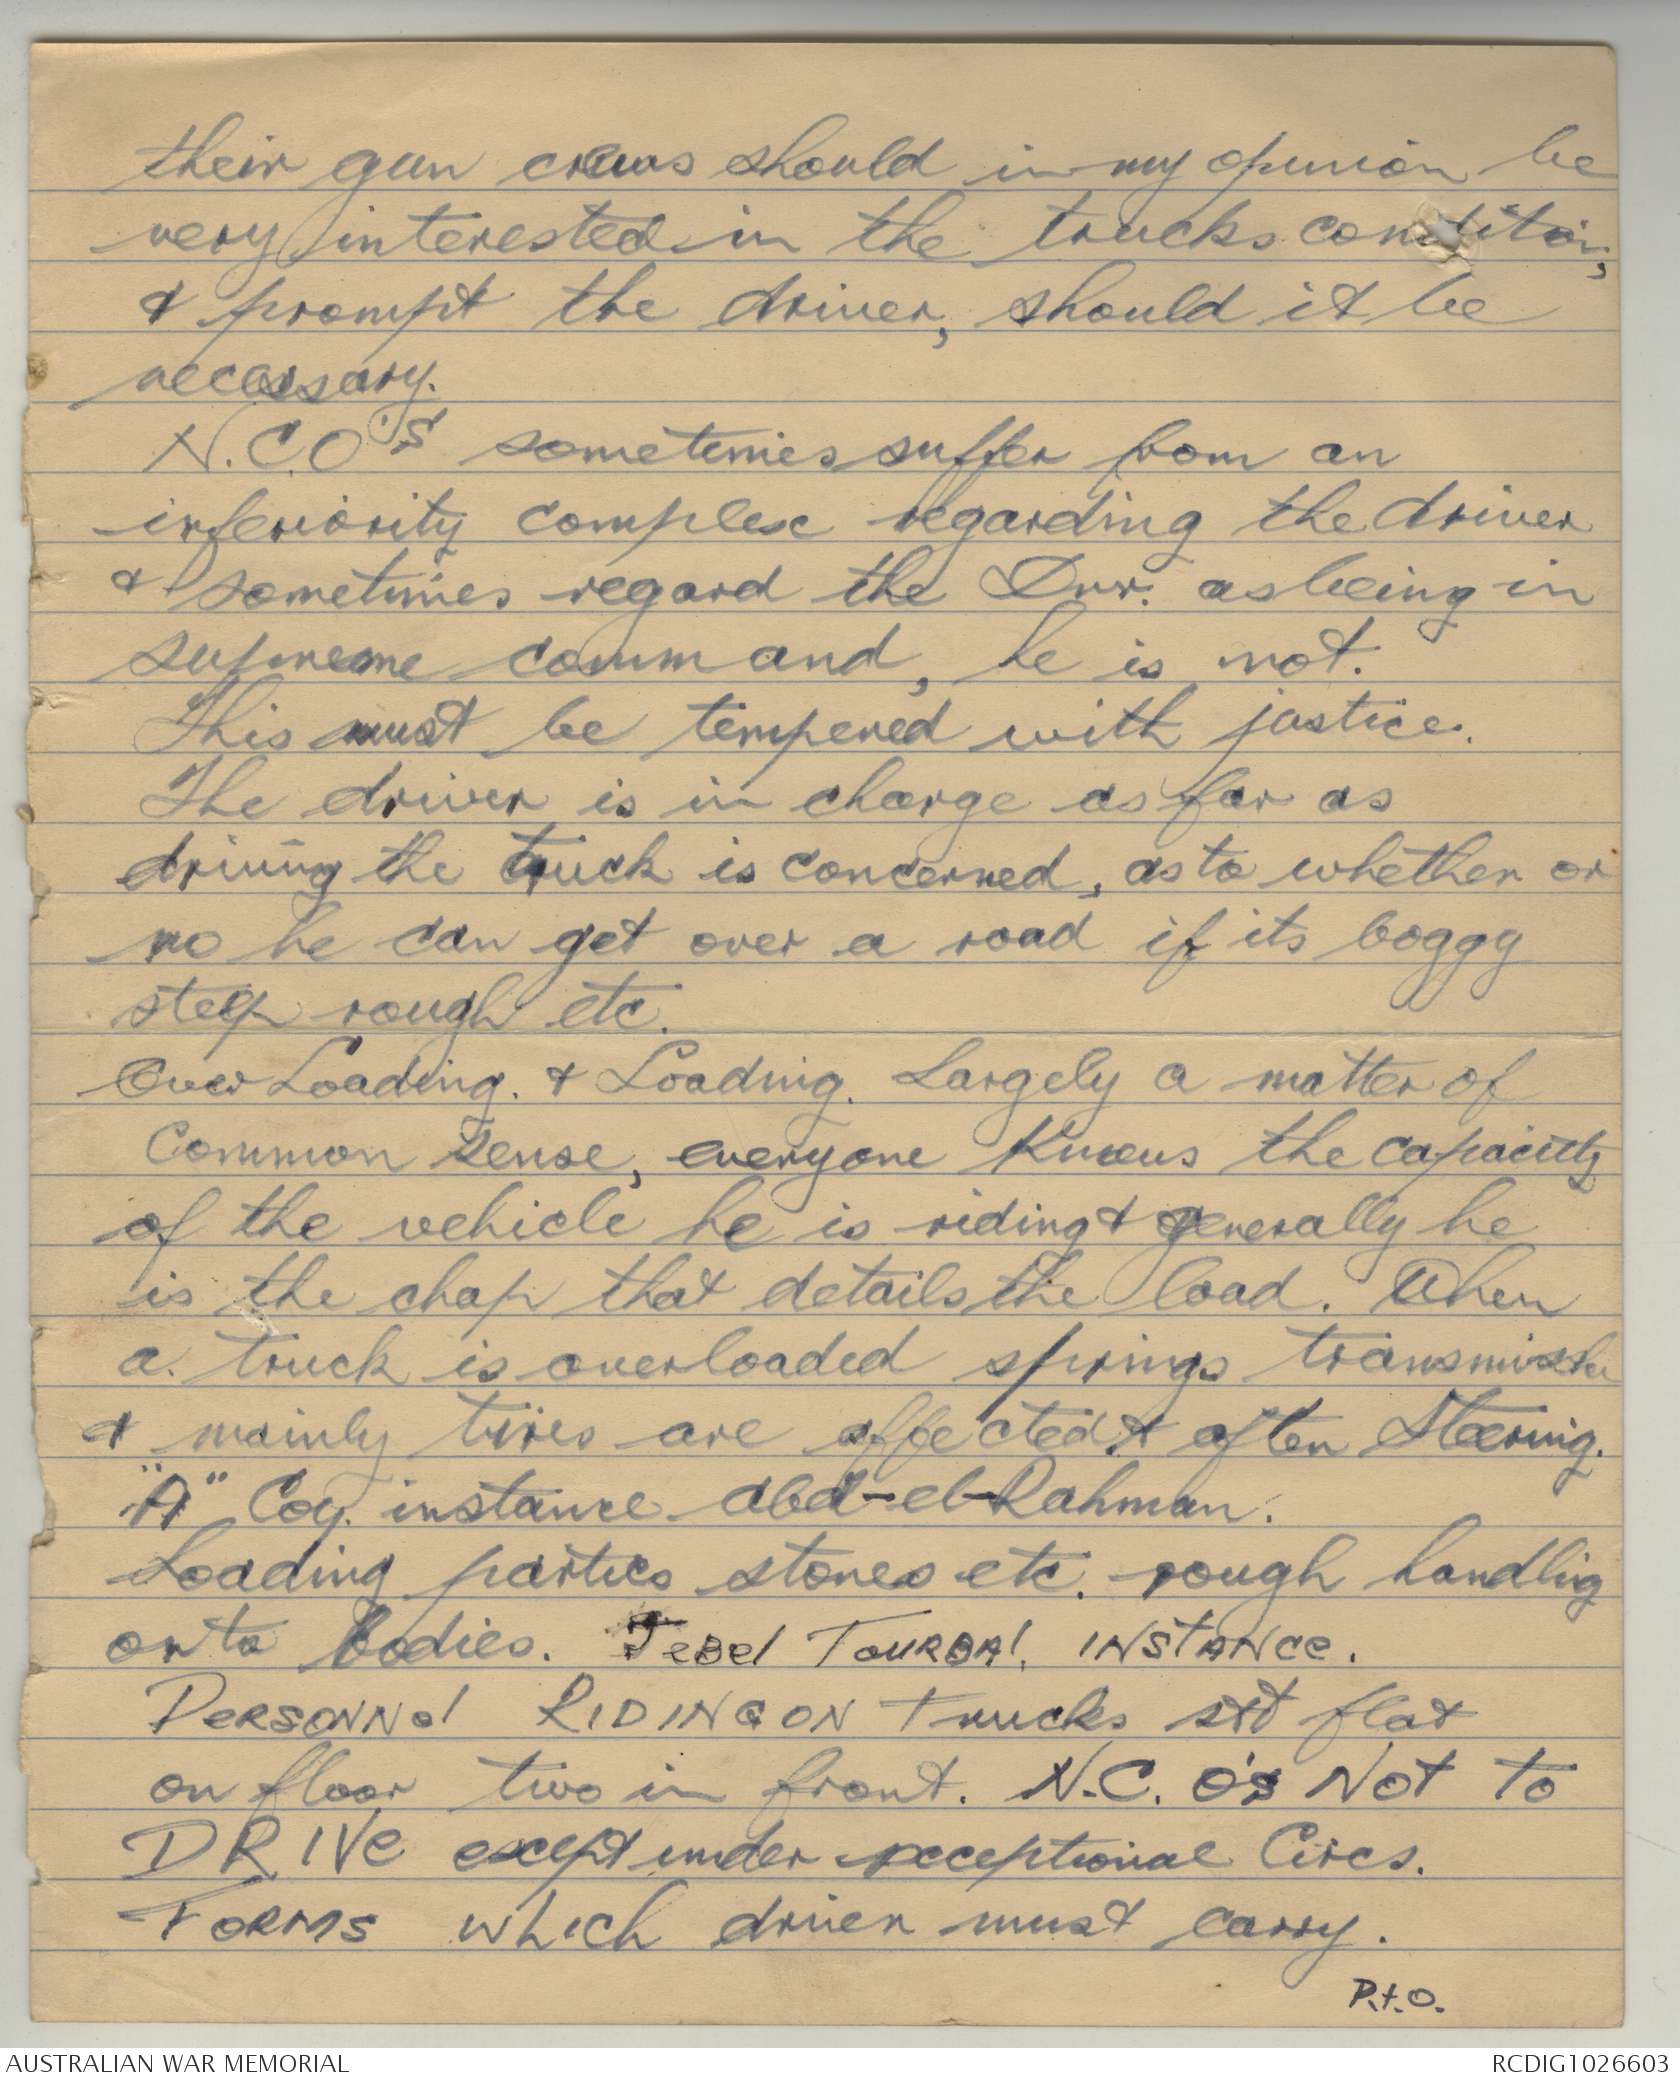 their gun crews should in my opinion be
very interested in the trucks condition,
& prompt the driver, should it be
necessary.
N.C.O's sometimes suffer from an
inferiority complex regarding the driver
& sometimes regard the Dvr. as being in
supreme command, he is not.
This must be tempered with justice.
The driver is in charge as far as
driving the truck is concerned, as to whether or
no he can get over a road if its boggy
steep rough etc.
Over Loading. & Loading. Largely a matter of
common sense, everyone knows the capacity
of the vehicle he is riding & generally he
is the chap that details the load. When
a truck is overloaded springs transmission
& mainly tires are affected & often Steering.
"A" Coy. instance abd-el-Rahman.
Loading parties stones etc. rough handling
onto bodies. Jebel TOURBAl. INSTANCe.
PeRSONNel RIDING ON Trucks sit flat
on floor two in front. N.C.O's Not to
DRIVe except under exceptional Circs.
FORMS which driver must carry.
P.t.O.
AUSTRALIAN WAR MEMORIAL
RCDIG1026603